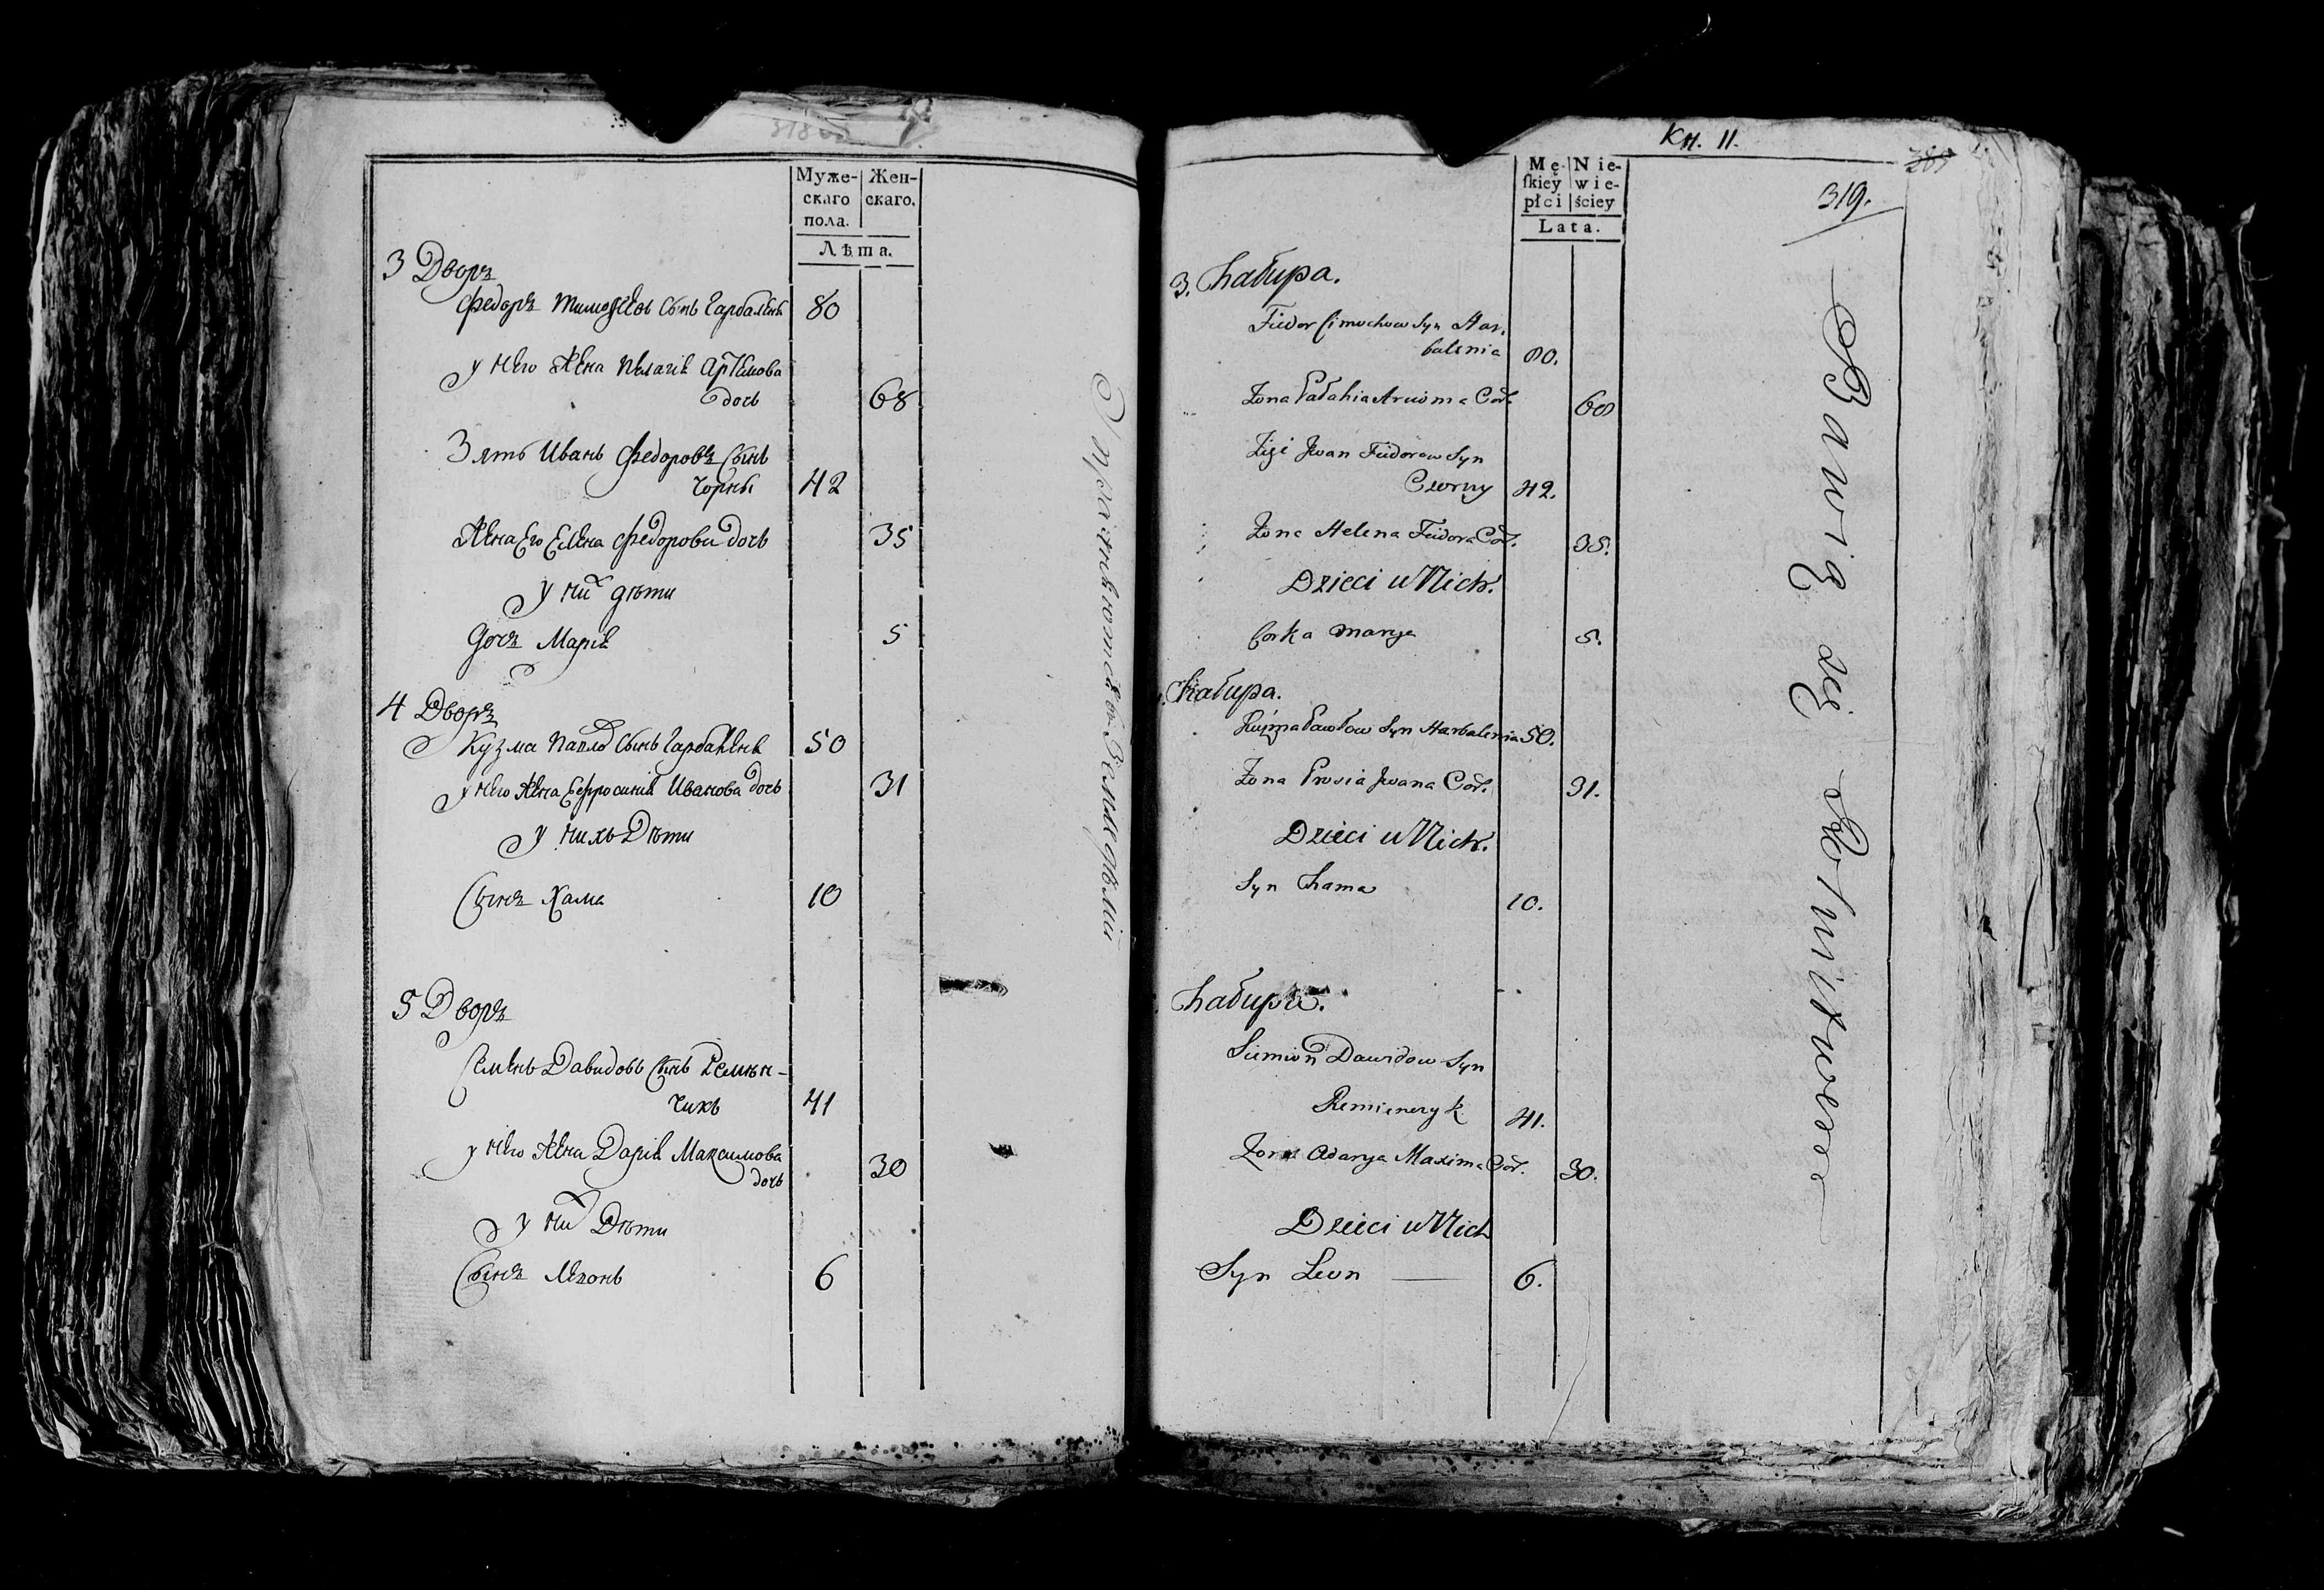 318 об
Муже-
скаго
пола.
Жен-
скаго.
Лѣта.
3 Дворъ
Федоръ Тимофѣевъ Сынъ Гарбаленя 80
у Него Жена Пелагія Артемова
дочь 68
Зять Иванъ Федоровъ Сынъ
Чорны 42
Жена Его Елена Федорова дочь 35
у них дѣти
Дочъ Марія 5
4 Дворъ
Кузма Павлов Сынъ Гарбаленя 50
у Него Жена Ефросинія Иванова дочь 31
у нихъ Дѣти
Сынъ Хама 10
5 Дворъ
Семенъ Давидовъ Сынъ Ремен-
чикъ 41
у Него Жена Дарія Максимова
дочь 30
у них Дѣти
Сынъ Леонъ 6
Упражняются въ Земледѣліи
Кн. 11.
289
319.
Mę-
skiey
płci
Nie-
wie-
ściey
Lata.
3. Chałupa.
Fiedor Cimochow Syn Har-
balenia 80.
Żona Pałahia Arcioma Cór. 68
Zięć Jwan Fiedorow Syn
Czorny 42.
Żona Helena Fiedora Cór. 35.
Dzieci u Nich.
Corka Marya 5.
Chałupa.
Kuźma Pawłow Syn Harbalenia 50.
Żona Prosia Jwana Cór. 31.
Dzieci u Nich.
Syn Chama 10.
Chałupa.
Siemion Dawidow Syn
Remienczyk 41.
Żona Adarya Maxima Cór. 30.
Dzieci u Nich
Syn Leon 6.
Bawią się Rolnictwem